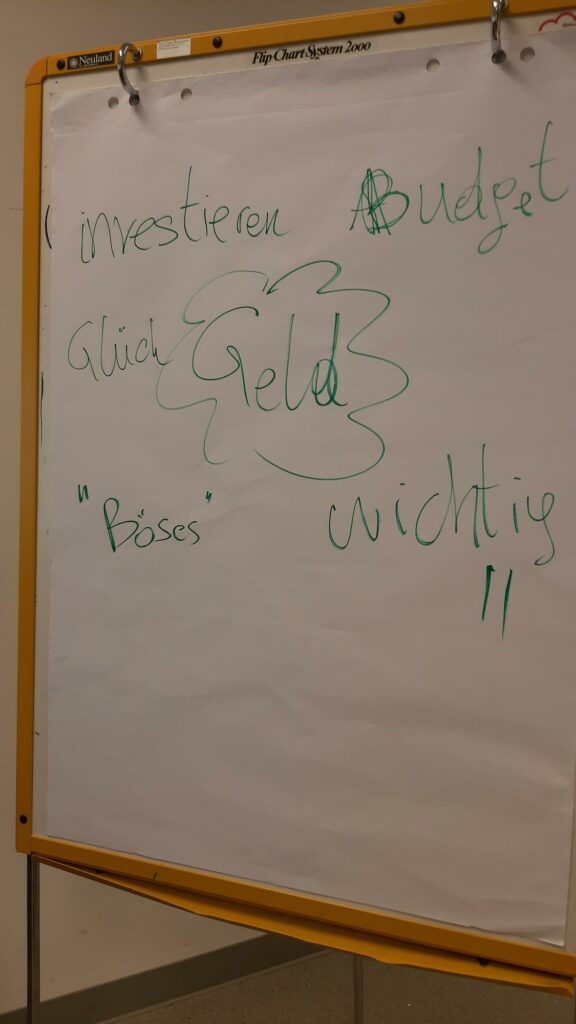 Neuland
Flip Chart System 2000
investieren Budget
Glück Geld
"Böses" wichtig
!!